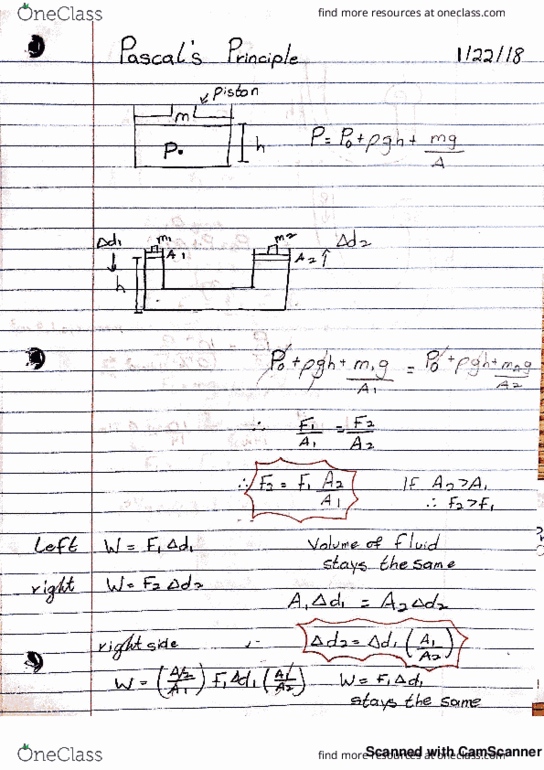 OneClass
find more resources at oneclass.com
Pascal's Principle 1/22/18
piston
m
P.
h
P = P₀ + ρgh + mg/A
Δd₁ m₁ A₁ m₂ A₂ Δd₂
h
P₀ + ρgh + m₁g/A₁ = P₀ + ρgh + m₂g/A₂
∴ F₁/A₁ = F₂/A₂
∴ F₂ = F₁ A₂/A₁ If A₂ > A₁
∴ F₂ > F₁
left W = F₁ Δd₁ Volume of fluid
stays the same
right W = F₂ Δd₂
A₁Δd₁ = A₂Δd₂
right side ∴ Δd₂ = Δd₁ (A₁/A₂)
W = (A₂/A₁) F₁ Δd₁ (A₁/A₂) W = F₁ Δd₁
stays the same
OneClass
find more resources at oneclass.com
Scanned with CamScanner